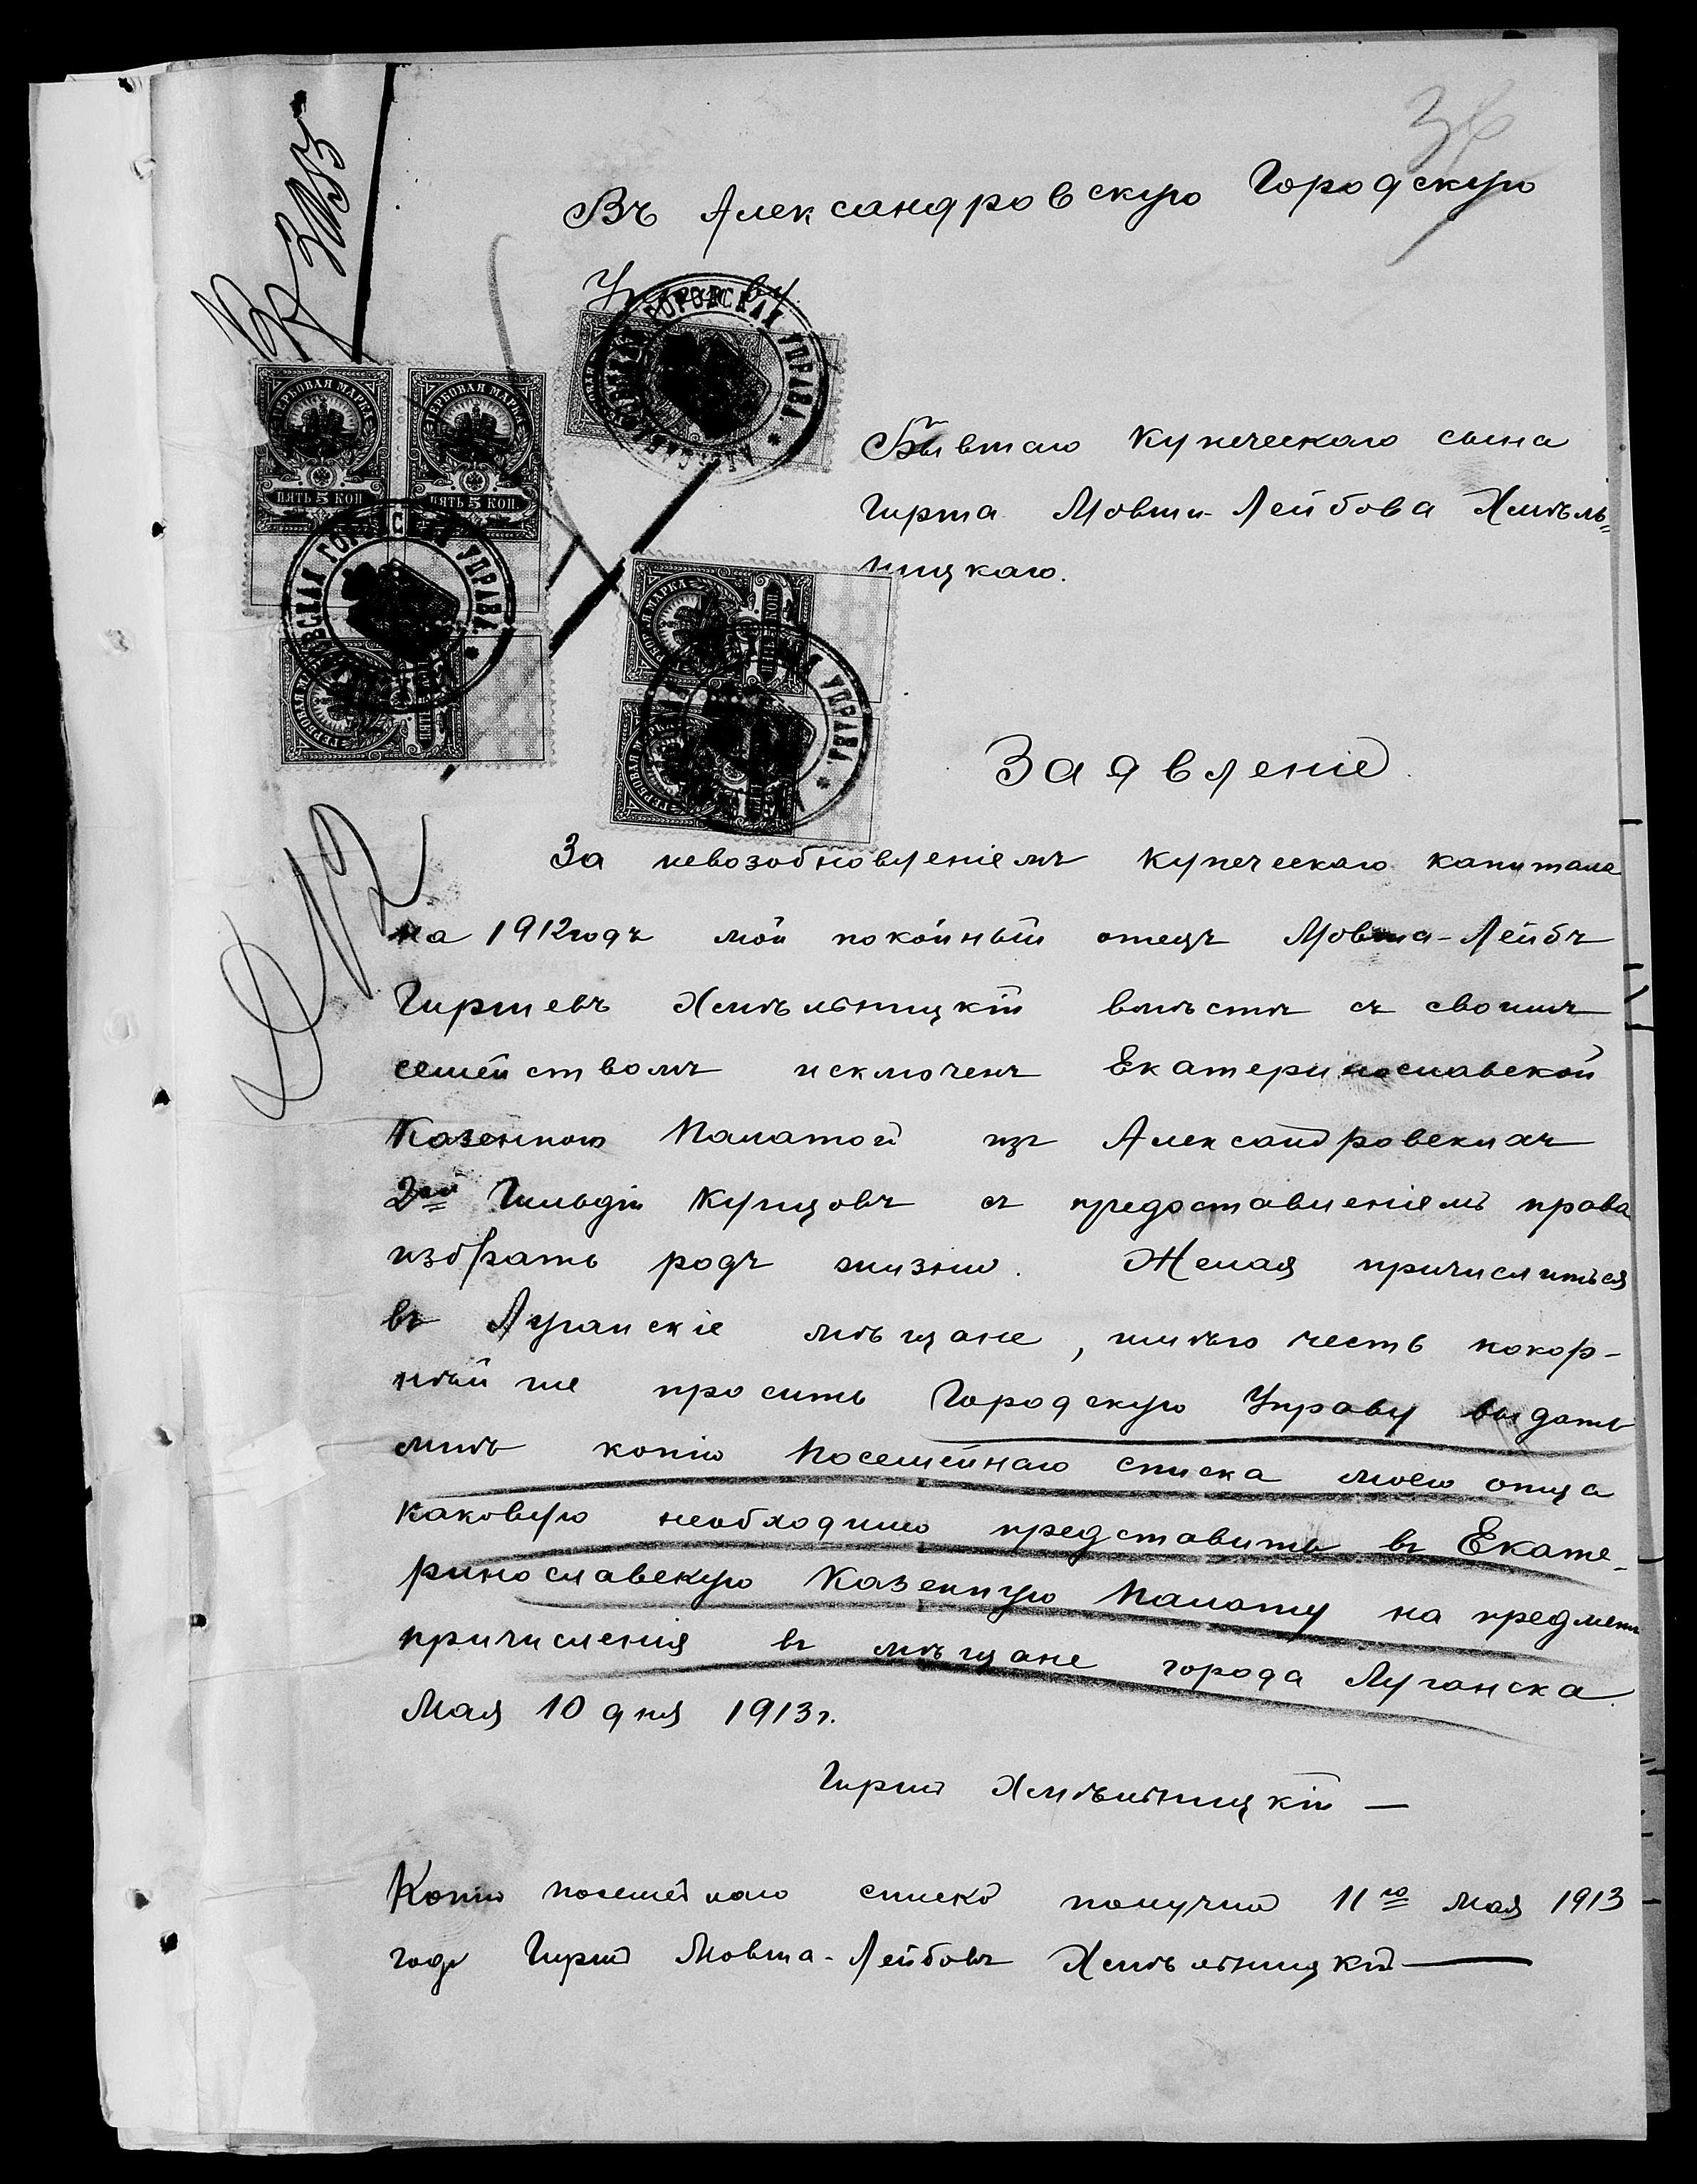 Въ Александровскую Городскую
Управу.
Бывшаго купеческаго сына
Гирша Мовши-Лейбова Хмѣль=
ницкаго.
ГЕРБОВАЯ МАРКА
ГЕРБОВАЯ МАРКА
ПЯТЬ 5 КОП
ПЯТЬ 5 КОП.
ГОРОДСКАЯ УПРАВА
Заявленіе.
За невозобновленіемъ купеческаго капитала
на 1912 годъ мой покойный отецъ Мовша-Лейбъ
Гиршевъ Хмѣльницкій вмѣстѣ съ своимъ
семействомъ исключенъ Екатеринославской
Казенною Палатой изъ Александровскихъ
2ой Гильдіи Купцовъ съ предоставленіемъ права
избрать родъ жизни. Желая причислиться
въ Луганскіе мѣщане, имѣю честь покор-
нѣйше просить Городскую Управу выдать
мнѣ копію Посемейнаго списка моего отца
каковую необходимо представить въ Екате-
ринославскую Казенную Палату на предметъ
причисленія въ мѣщане города Луганска.
Мая 10 дня 1913 г.
Гиршъ Хмѣльницкій —
Копію посемейнаго списка получилъ 11го мая 1913
года Гиршъ Мовша-Лейбовъ Хмѣльницкій